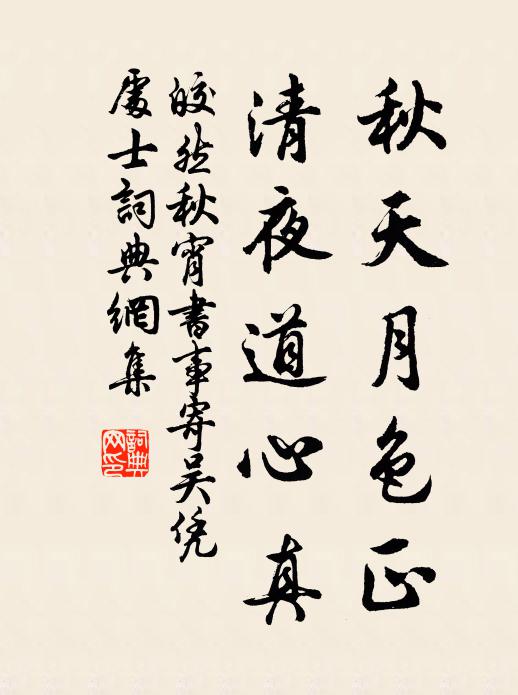 秋天月色正
清夜道心真
皎然秋宵書事寄吳凭
處士詞典網集
詞典
网印